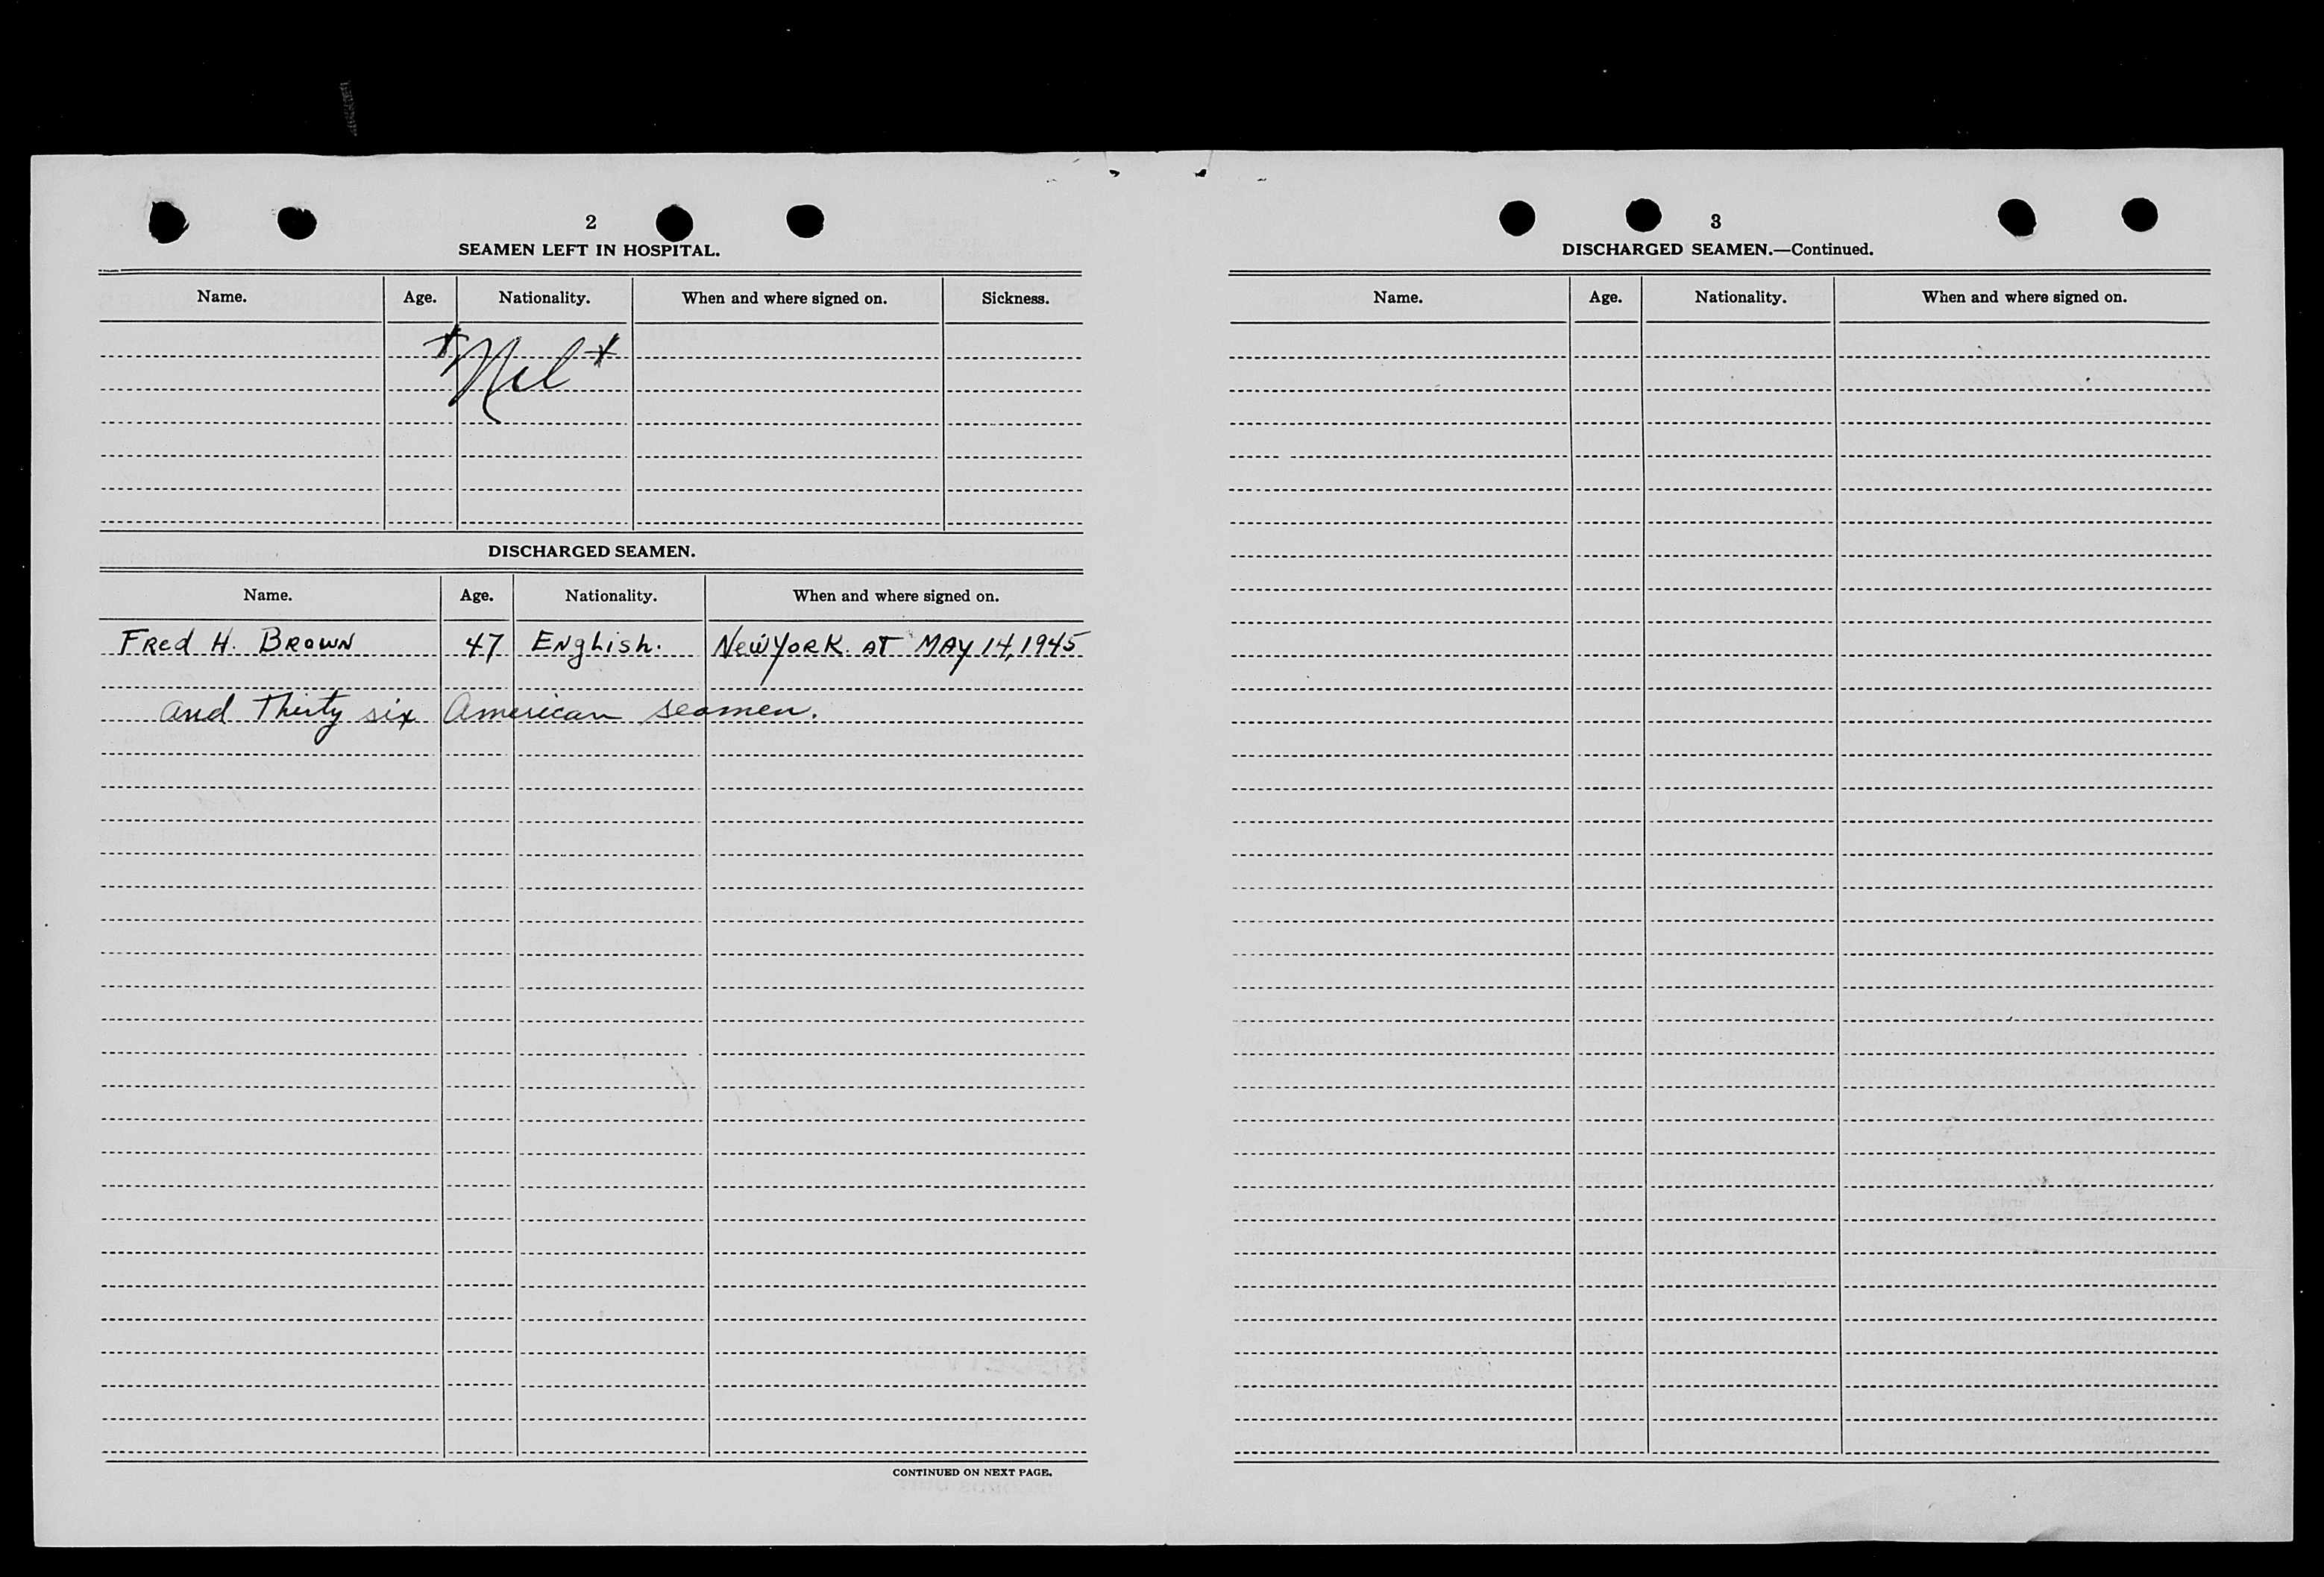 2
SEAMEN LEFT IN HOSPITAL.
Name. Age. Nationality. When and where signed on. Sickness.
* Nil *
DISCHARGED SEAMEN.
Name. Age. Nationality. When and where signed on.
Fred H. Brown 47 English. New York. at May 14, 1945
and Thirty six American seamen.
CONTINUED ON NEXT PAGE.
3
DISCHARGED SEAMEN.—Continued.
Name. Age. Nationality. When and where signed on.